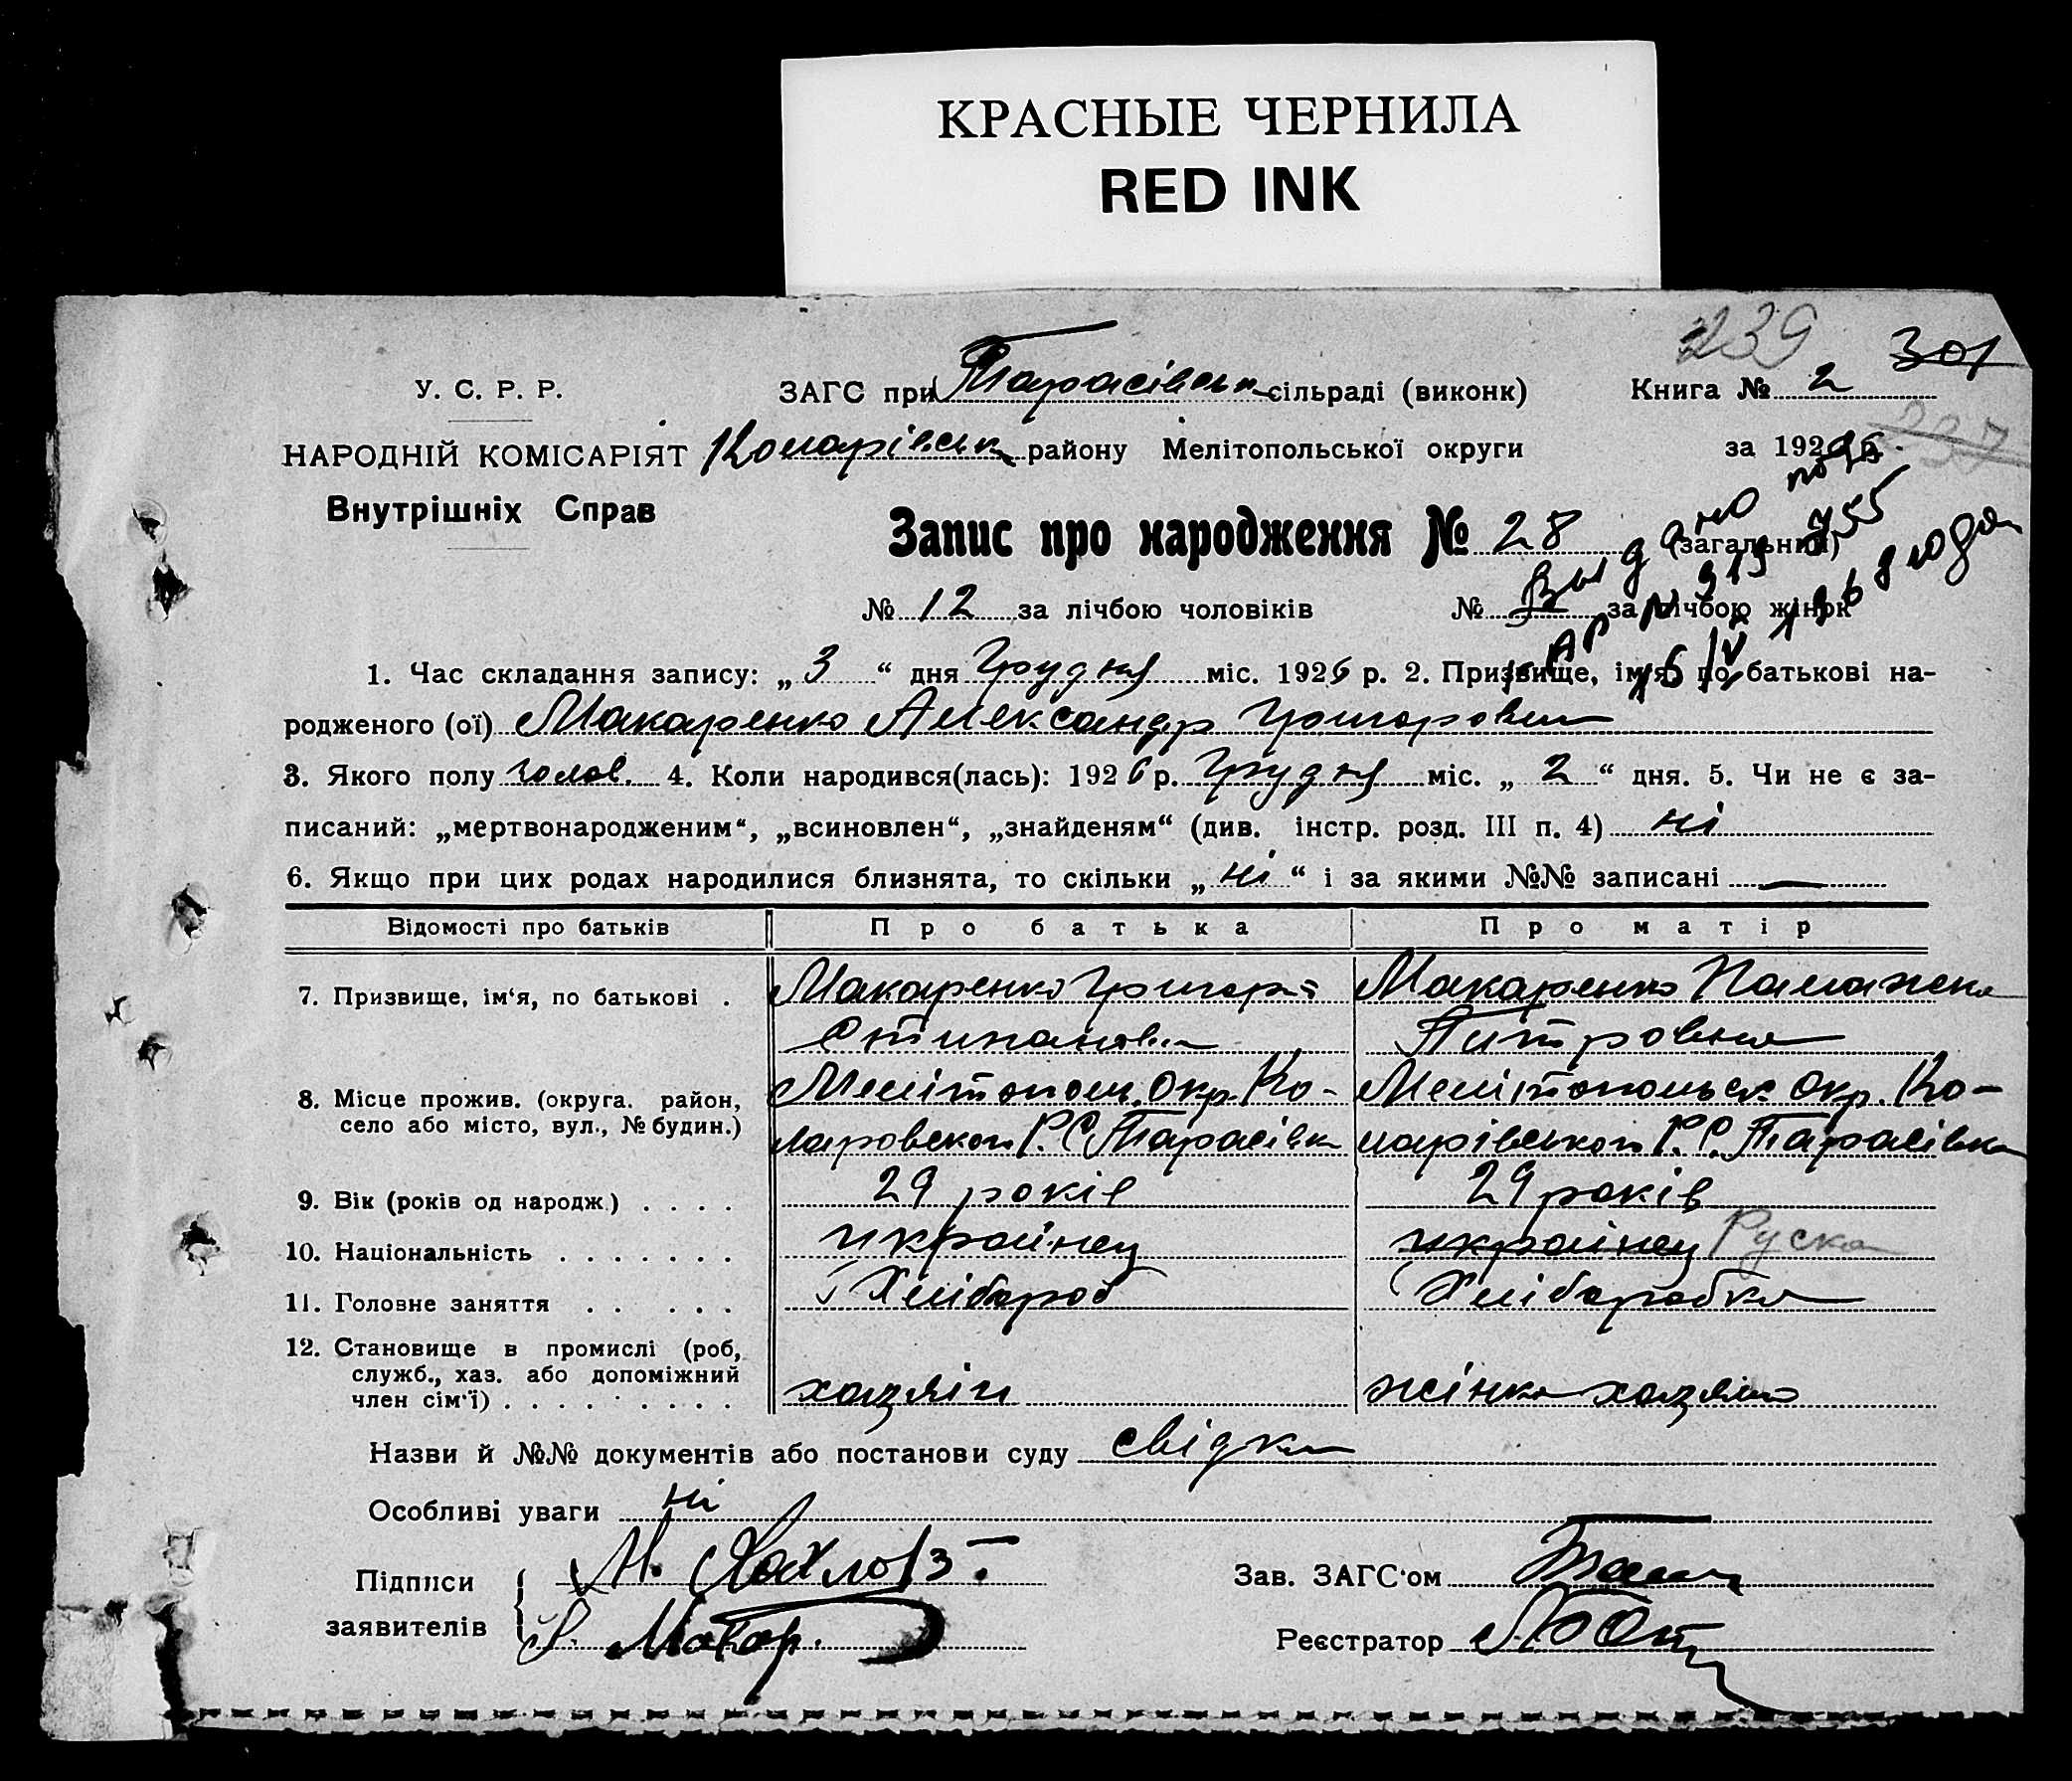 КРАСНЫЕ ЧЕРНИЛА
RED INK
239 301
У. С. Р. Р.
ЗАГС при Тарасівськ сільраді (виконк) Книга № 2
237
НАРОДНІЙ КОМІСАРІЯТ Коларівськ району Мелітопольської округи за 1926 р.
Внутрішніх Справ
Запис про народження № 28 (загальний)
№ 12 за лічбою чоловіків № за лічбою жінок
Выдано
1. Час складання запису: „ 3 “ дня Грудня міс. 1926 р. 2. Призвище, ім'я, по батькові на-
родженого (ої) Макаренко Александр Григорович
3. Якого полу чолов. 4. Коли народився(лась): 1926 р. Грудня міс. „ 2 “ дня. 5. Чи не є за-
писаний: „мертвонародженим“, „всиновлен“, „знайденям“ (див. інстр. розд. III п. 4) ні
6. Якщо при цих родах народилися близнята, то скільки „ ні “ і за якими №№ записані —
Відомості про батьків Про батька Про матір
7. Призвище, ім‘я, по батькові . Макаренко Григорі Макаренко
Стипанович Питровна
8. Місце прожив. (округа. район, Мелітополь. Окр. Ко- Мелітопольск Окр. Ко-
село або місто, вул., № будин.) ларовского Р. С. Тарасівка ларівського Р. С. Тарасівка
9. Вік (років од народж.) . . . . 29 років 29 років
10. Національність . . . . . . . украінец украінец Руска
11. Головне заняття . . . . . Хлібороб Хліборобка
12. Становище в промислі (роб,
служб., хаз. або допоміжний
член сім'ї) . . . . . . . . . хазяін жінка хазяіна
Назви й №№ документів або постанови суду свідки
Особливі уваги ні
Підписи Зав. ЗАГС'ом
заявителів Реєстратор